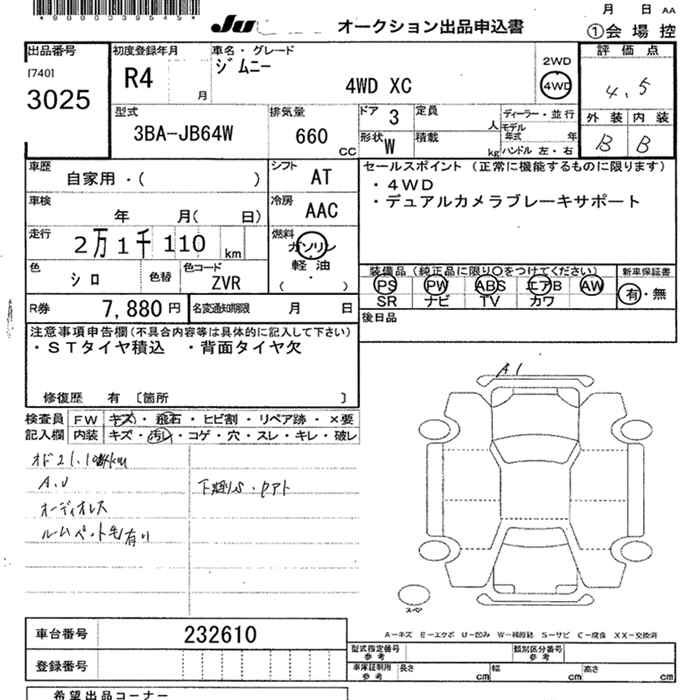 *0000398545*
Ju オークション出品申込書
月 日 AA
①会場控
出品番号
[740]
3025
初度登録年月
R4
月
車名・グレード
ジムニー
4WD XC
2WD
4WD
評価点
4.5
外装 内装
B B
型式
3BA-JB64W
排気量
660
CC
ドア 3
定員
人
形状 W
積載
kg
ディーラー・並行
モデル年式 年
ハンドル 左・右
車歴
自家用・( )
シフト
AT
車検
年 月( 日)
冷房
AAC
走行
2万1千110 km
燃料
ガソリン
軽油
( )
色
シロ
色替
色コード
ZVR
R券 7,880円
名変通知期限 月 日
セールスポイント (正常に機能するものに限ります)
・4WD
・デュアルカメラブレーキサポート
装備品(純正品に限り○をつけてください)
PS PW ABS エアB AW
SR ナビ TV カワ
新車保証書
有・無
後日品
注意事項申告欄(不具合内容等は具体的に記入して下さい)
・STタイヤ積込 ・背面タイヤ欠
修復歴 有 [箇所 ]
検査員記入欄
FW キズ・飛石・ヒビ割・リペア跡・×要
内装 キズ・汚れ・コゲ・穴・スレ・キレ・破レ
A.J
オーディオレス
ルムペット毛有り
A1
スペア
A-キズ E-エクボ U-凹み W-補修跡 S-サビ C-腐食 XX-交換済
車台番号 232610
登録番号
型式指定番号
参考
類別区分番号
参考
車庫証明用
参考
長さ cm
幅 cm
高さ cm
希望出品コーナー